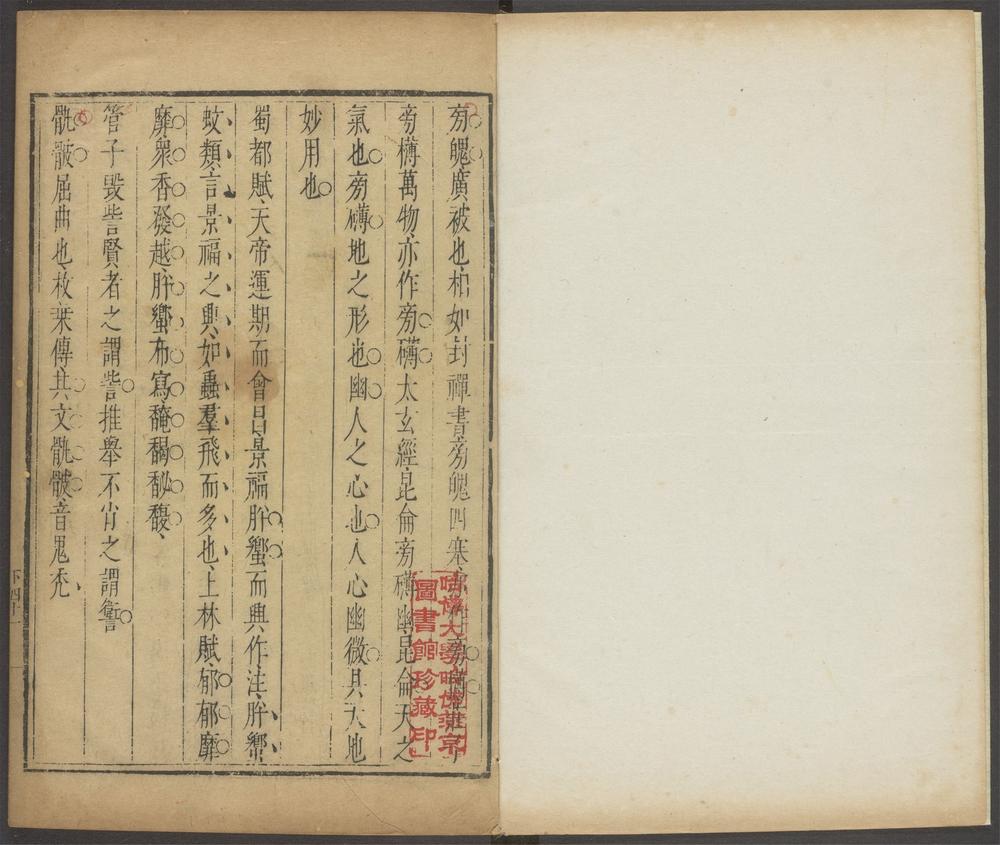 旁魄廣被也相如封禪書旁魄四塞
旁礡萬物亦作旁礡太玄經昆侖旁礡幽昆侖天之
氣也旁礡地之形也幽人之心也人心幽微具天地
妙用也
蜀都賦天帝運期而會昌景福肸蠁而興作注肸蠁
蚊類言景福之興如蟲羣飛而多也上林賦郁郁靡
靡衆香發越肸蠁布寫馣馤馝馥
管子毀訾賢者之謂訾推舉不肖之謂讆
骫骳屈曲也枚乗傳其文骫骳音鬼禿
下四十一
哈佛大學哈佛燕京
圖書館珍藏印